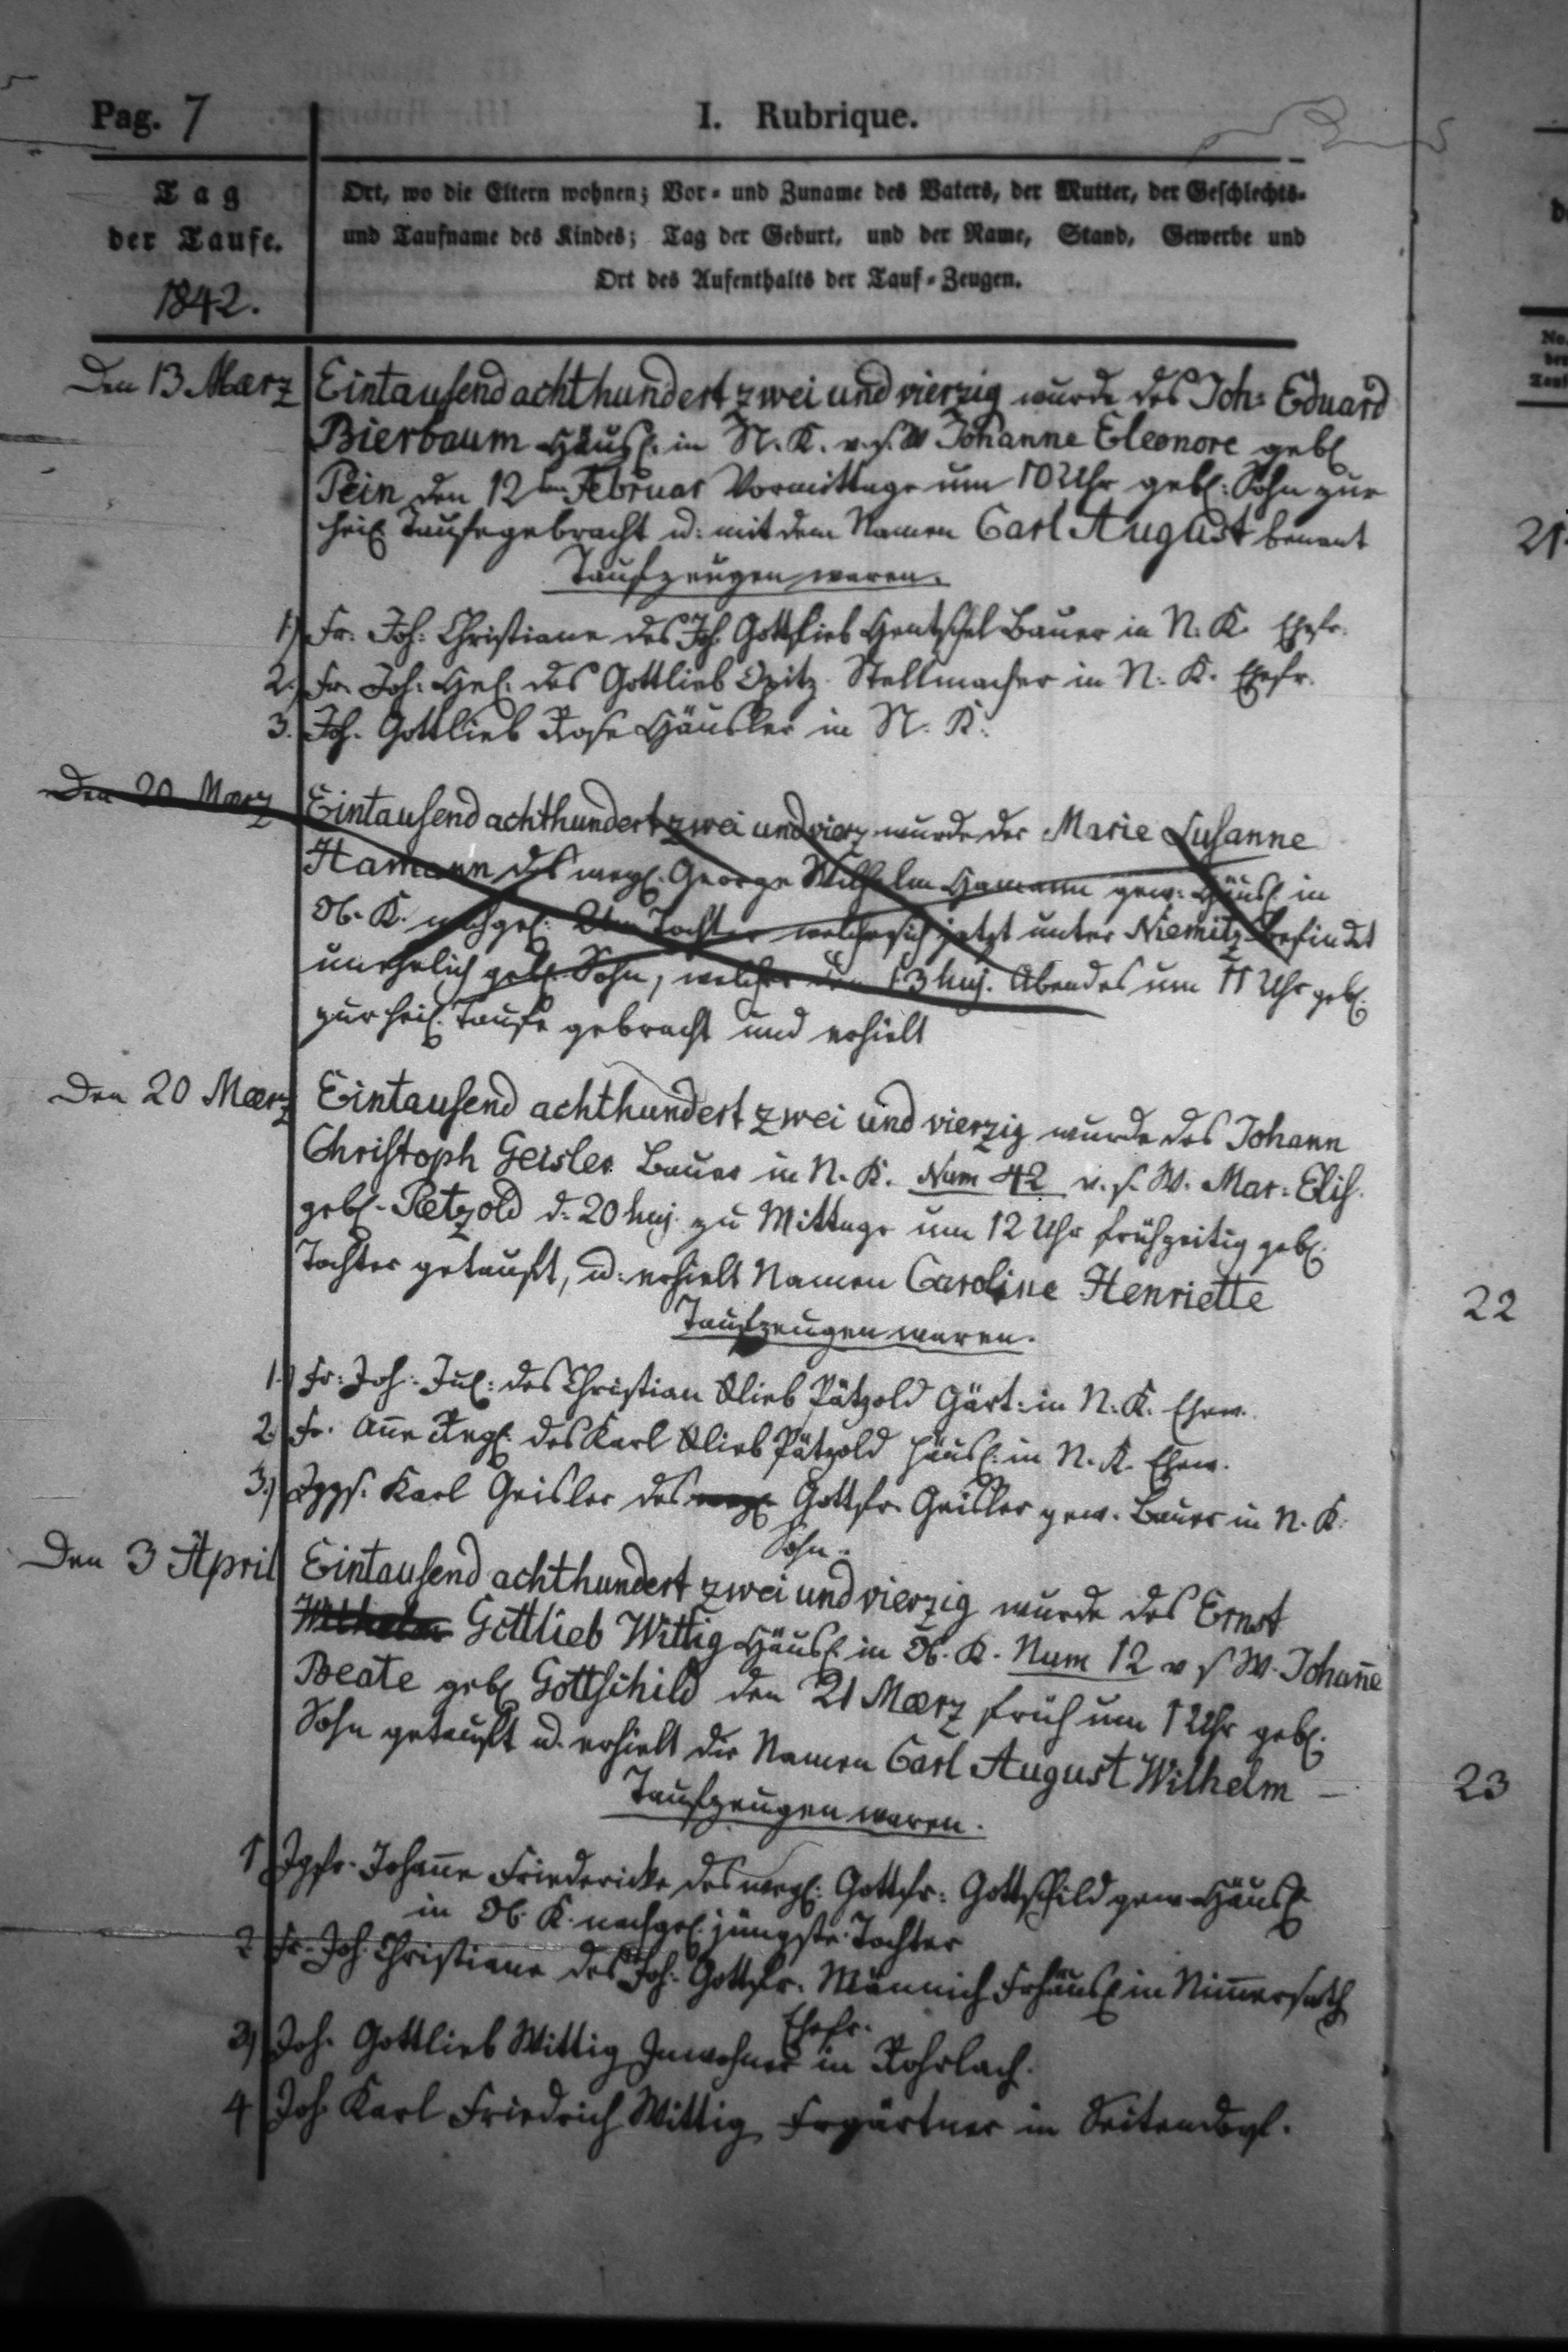 Pag. 7
I. Rubrique.
Tag
der Taufe.
1842.
Ort, wo die Eltern wohnen; Vor- und Zuname des Vaters, der Mutter, der Geschlechts-
und Taufname des Kindes; Tag der Geburt, und der Name, Stand, Gewerbe und
Ort des Aufenthalts der Tauf-Zeugen.
Den 13 Maerz
Eintausend achthundert zwei und vierzig wurde des Joh: Eduard
Bierbaum Häusl. in N. K. v. s. W Johanne Eleonore geb.
Pein den 12ten Februar Vormittags um 10 Uhr geb: Sohn zur
heil. Taufe gebracht u. mit dem Namen Carl August benant
Taufzeugen waren.
1) Fr. Joh: Christiane des Joh Gottlieb Hentschel Bauer in N. K. Ehefr.
2. Fr. Joh: Hel. des Gottlieb Opitz Stellmacher in N. K. Ehefr.
3. Joh. Gottlieb Rose Häusler in N. K.
Den 20 Maerz
Eintausend achthundert zwei und vierz wurde der Marie Susanne
Hamann des weyl. George Wilhelm Hamann gew. Häusl. in
Ob. K. nachgel. Tochter welche sich jetzt unter Niemitz befindet
unehelich geb. Sohn, welcher den 13 huj. Abendes um 11 Uhr geb.
zur heil. Taufe gebracht und erhielt
Den 20 Maerz
Eintausend achthundert zwei und vierzig wurde des Johann
Christoph Geisler Bauer in N. K. Num 42 v. s. W. Mar: Elis.
geb. Paetzold d. 20 huj. zu Mittage um 12 Uhr frühzeitig geb.
Tochter getauft, u. erhielt Namen Caroline Henriette
22
Taufzeugen waren.
1.) Fr: Joh: Jul: des Christian Glieb Pätzold Gärt: in N. K. Ehew.
2. Fr. Anne des Karl Glieb Pätzold Häusl. in N. K. Ehew.
3.) Jggs. Karl Geisler des weyl. Gottfr. Geisler gew. Bauer in N. K.
Sohn.
Den 3 April
Eintausend achthundert zwei und vierzig wurde des Ernst
Wilhelm Gottlieb Wittig Häusl. in Ob. K. Num 12 v s W. Johañe
Beate geb. Gottschild den 21 Maerz früh um 1 Uhr geb.
Sohn getauft u. erhielt die Namen Carl August Wilhelm —
23
Taufzeugen waren.
1 Jgfr. Johañe Friedericke des weyl: Gottfr: Gottschild gew. Häusl.
in Ob. K. nachgel. jüngste Tochter
2 Fr. Joh. Christiane des Joh. Gottfr. Männich Frhäusl in Nimersath
Ehefr.
3) Joh. Gottlieb Wittig Inwohner in Rohrlach.
4 Joh Karl Friedrich Wittig Frgärtner in Seitendorf.
21